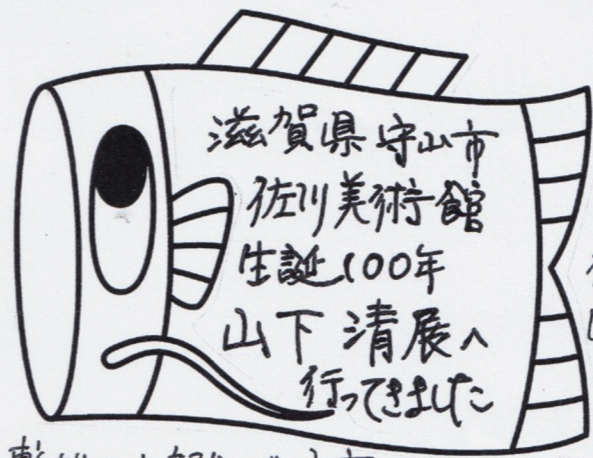 滋賀県守山市
佐川美術館
生誕100年
山下清展へ
行ってきました